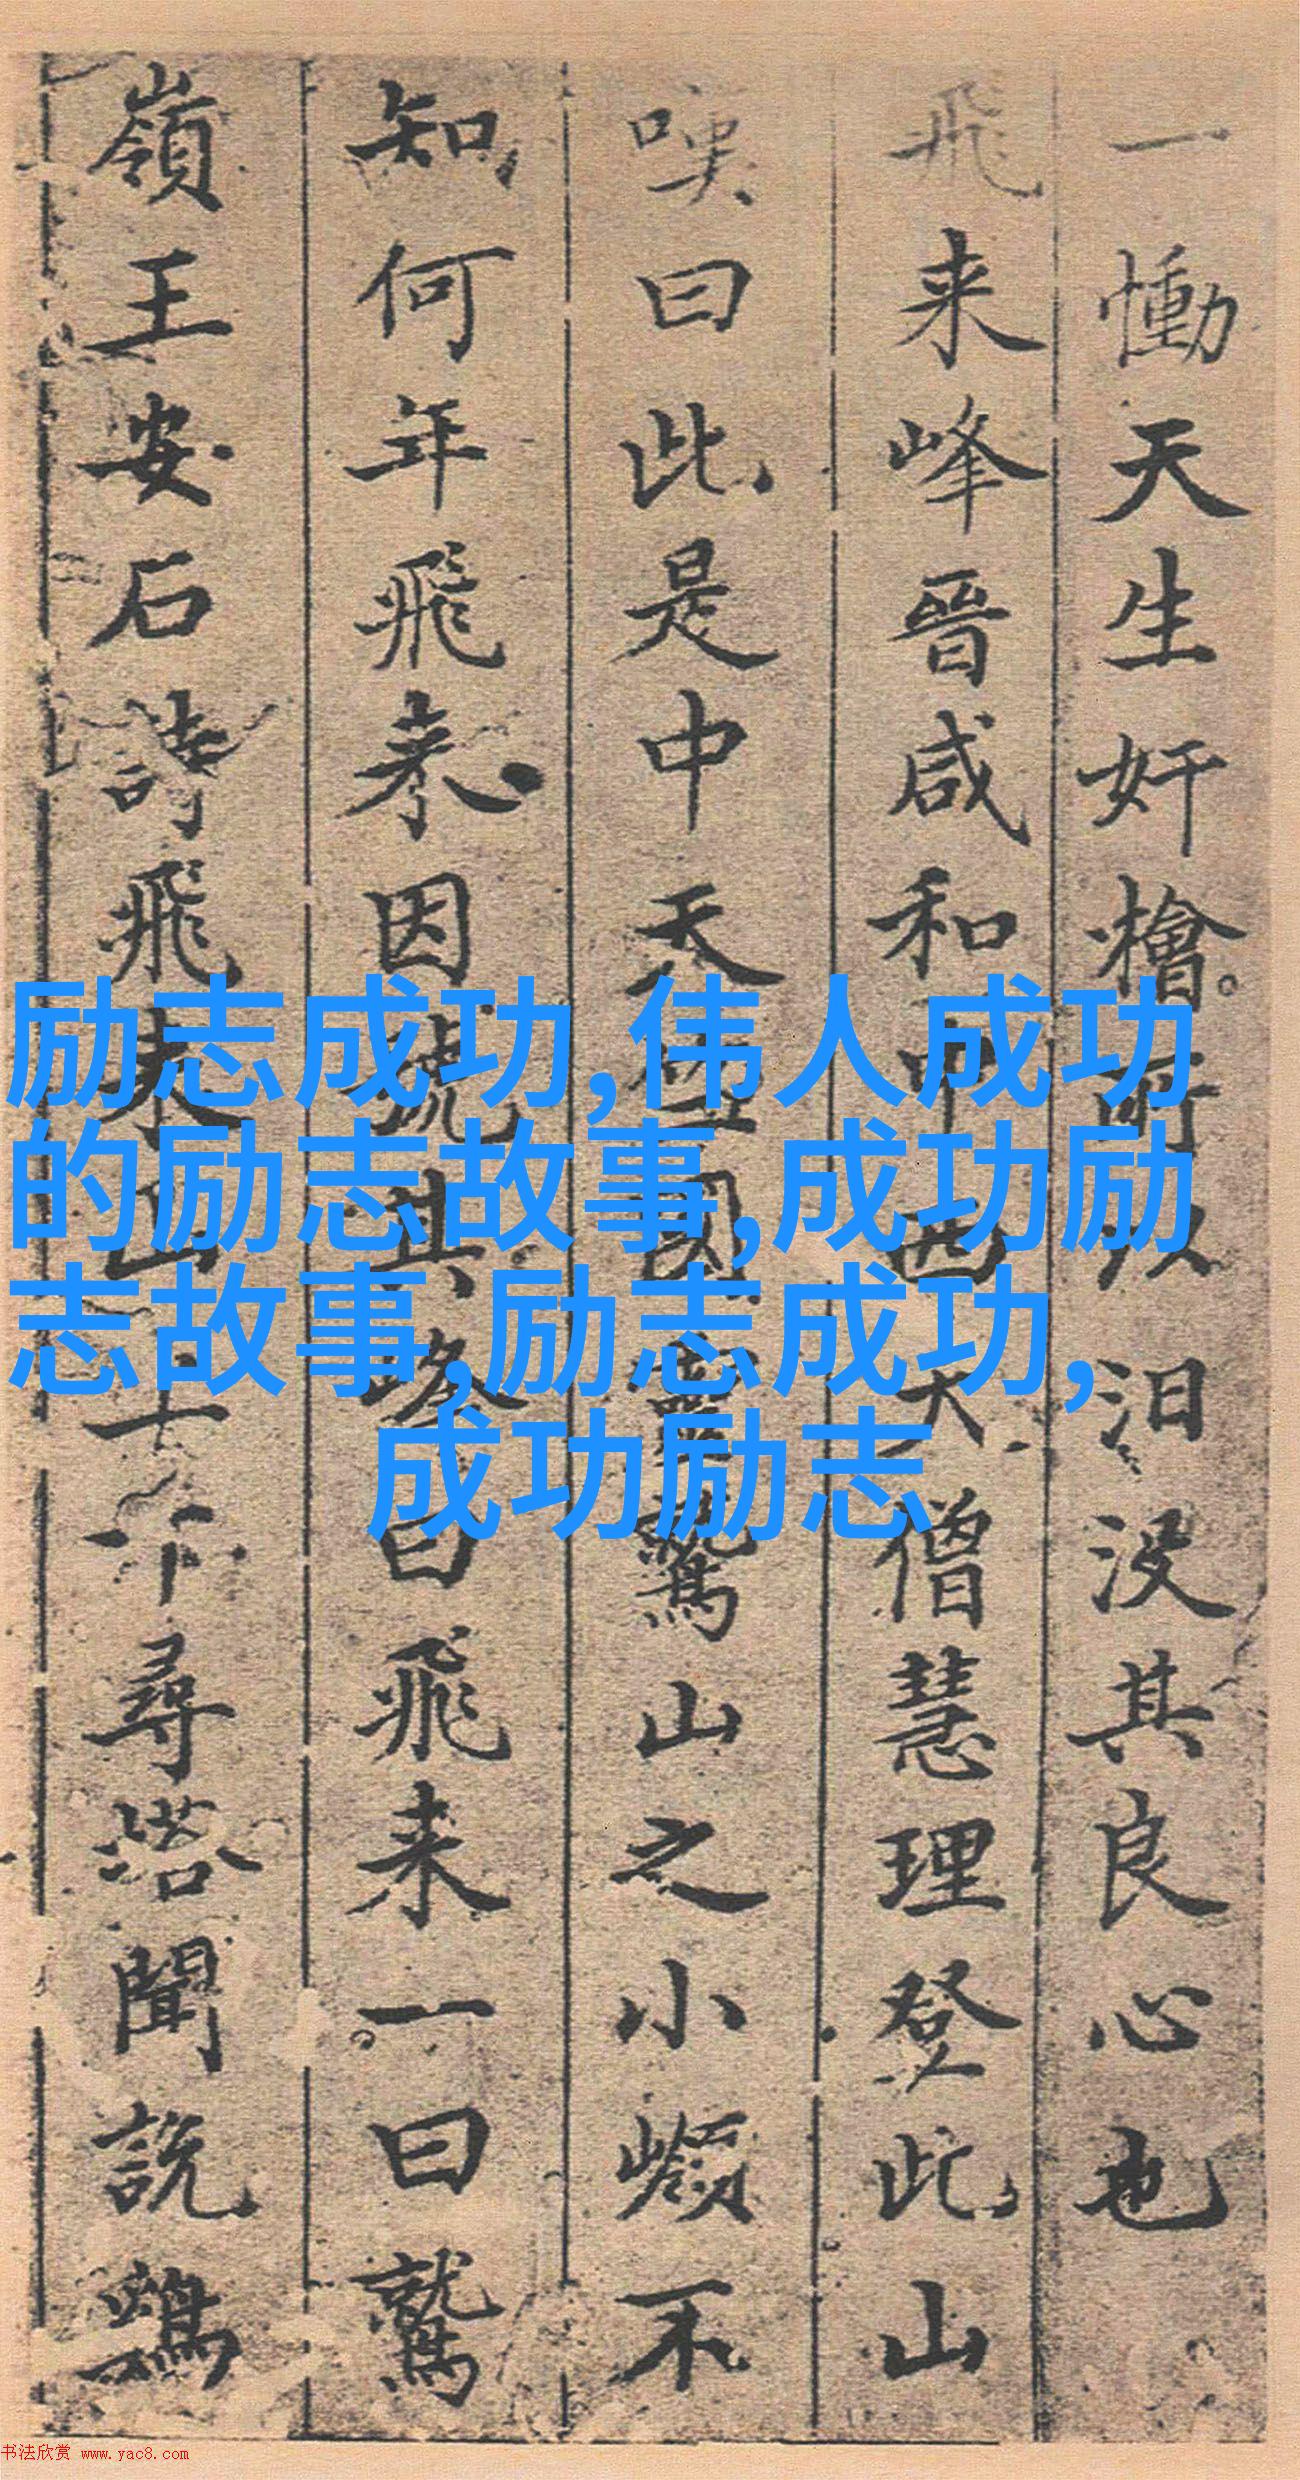 一慟天生奸檜所以汨没其良心也
飛来峰晉咸和中西天僧慧理登此山
嘆曰此是中天竺國靈鷲山之小嶺不
知何年飛来因號其峰曰飛来一曰鷲
嶺王安石詩飛来山上千尋塔聞説鷄
励志成功,伟人成功
的励志故事,成功励
志故事,励志成功,
成功励志
书法欣赏 www.yac8.com